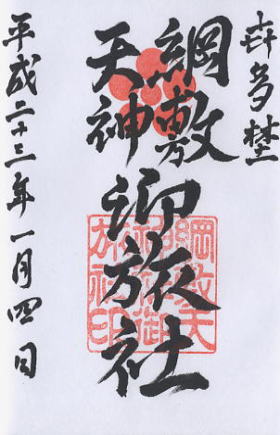 㐂多埜
綱敷
天神
御旅社
平成二十三年一月四日
綱敷天
神社御
旅社印